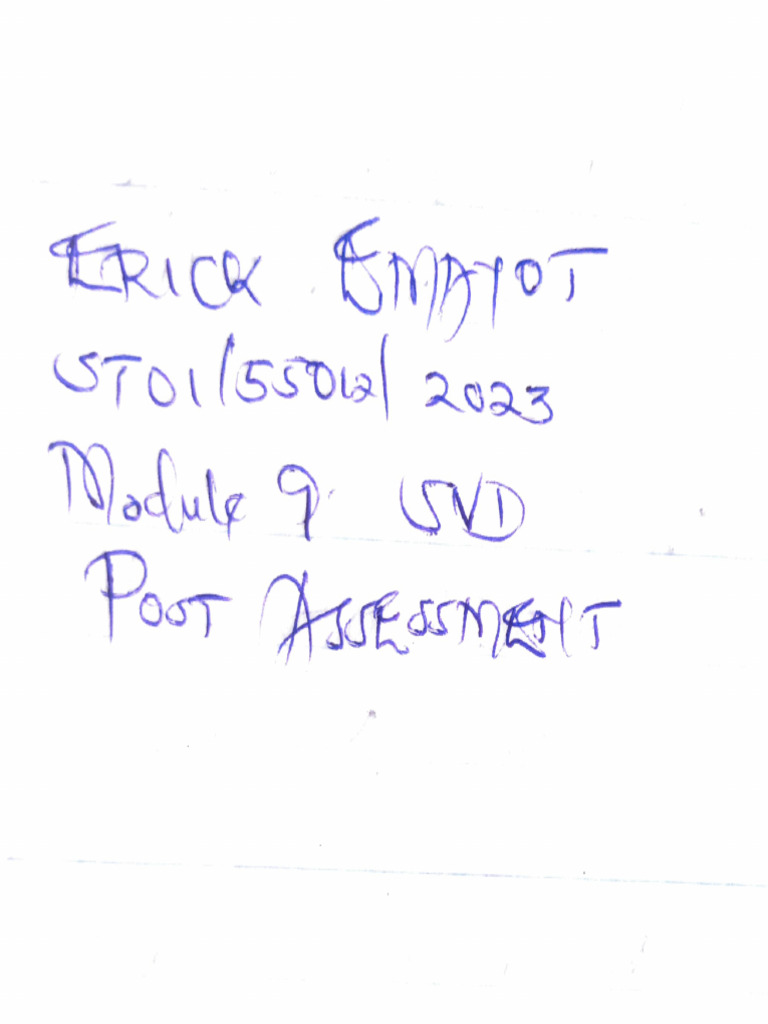 ERICK EMAYOT
ST01/55012/2023
Module 9 SVD
POST ASSESSMENT